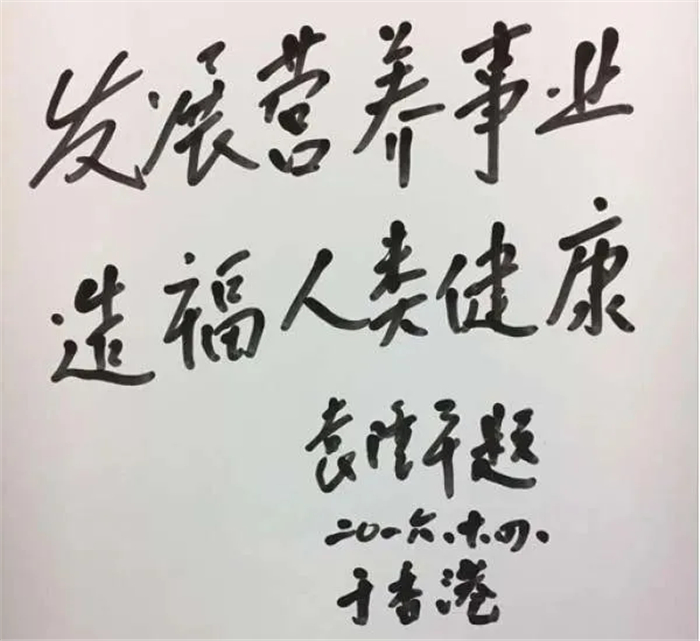 发展营养事业
造福人类健康
袁隆平题
二〇一六、十、四、
于香港